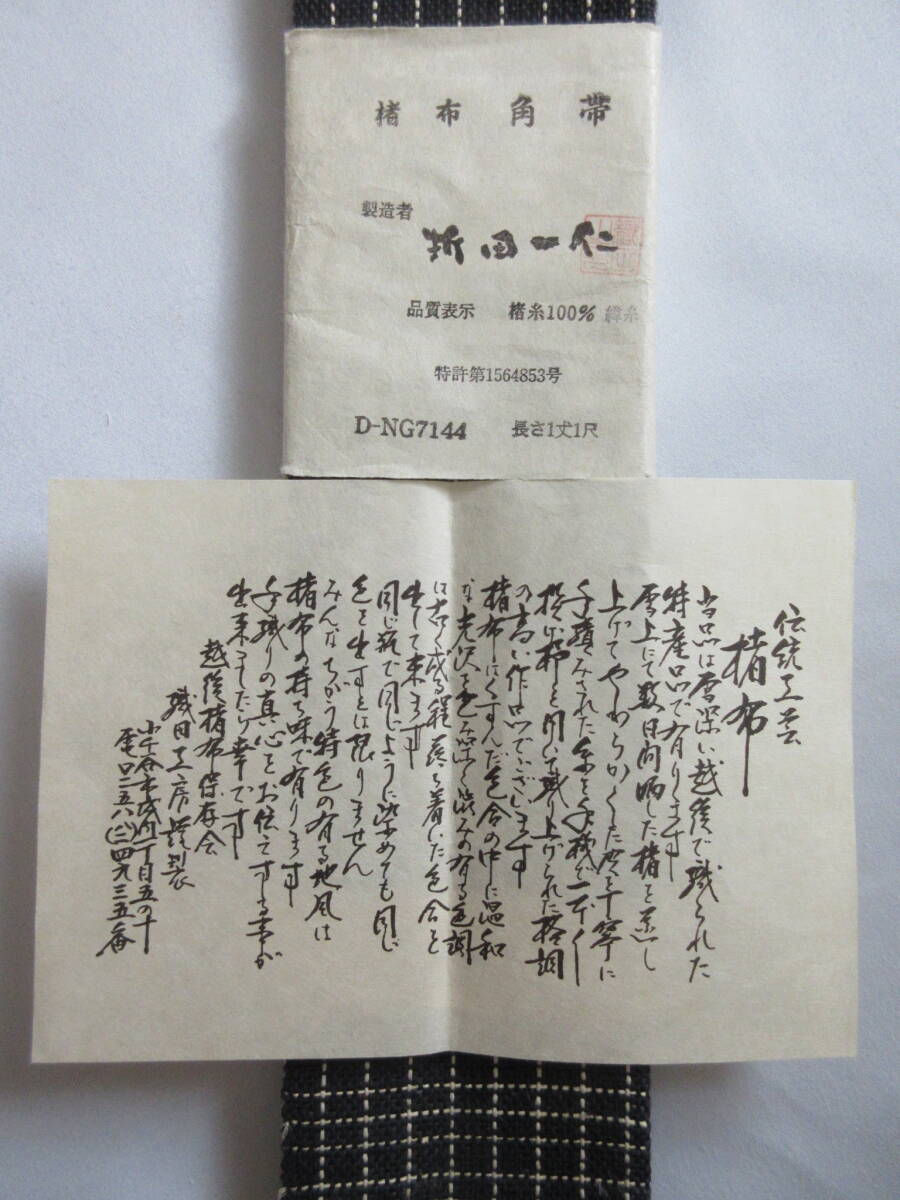 楮布角帯
製造者
折田一仁
品質表示 楮糸100% 緯糸
特許第1564853号
D-NG7144 長さ1丈1尺
伝統工芸
楮布
当品は雪深い越後で織られた
特産品で有ります
雪上にて数日間晒した楮を蒸し
上げてやわらかくした皮を丁寧に
手績みされた糸を手機で一本一
投げ杼を用いて織り上げられた格調
の高い作品でございます
楮布はくすんだ色合の中に温和
な光沢を色み深く渋みの有る色調
は古く成る程落ち着いた色合を
生して来ます
同じ糸で同じように染めても同じ
色を出すとは限りません
みんなちがう特色の有る地風は
楮布の持ち味で有ります
手織りの真心をお伝えする事が
出来ましたら幸です
越後楮布保存会
織田工房謹製
小千谷市城内一丁目五の十
電〇二五八(二)四九三五番